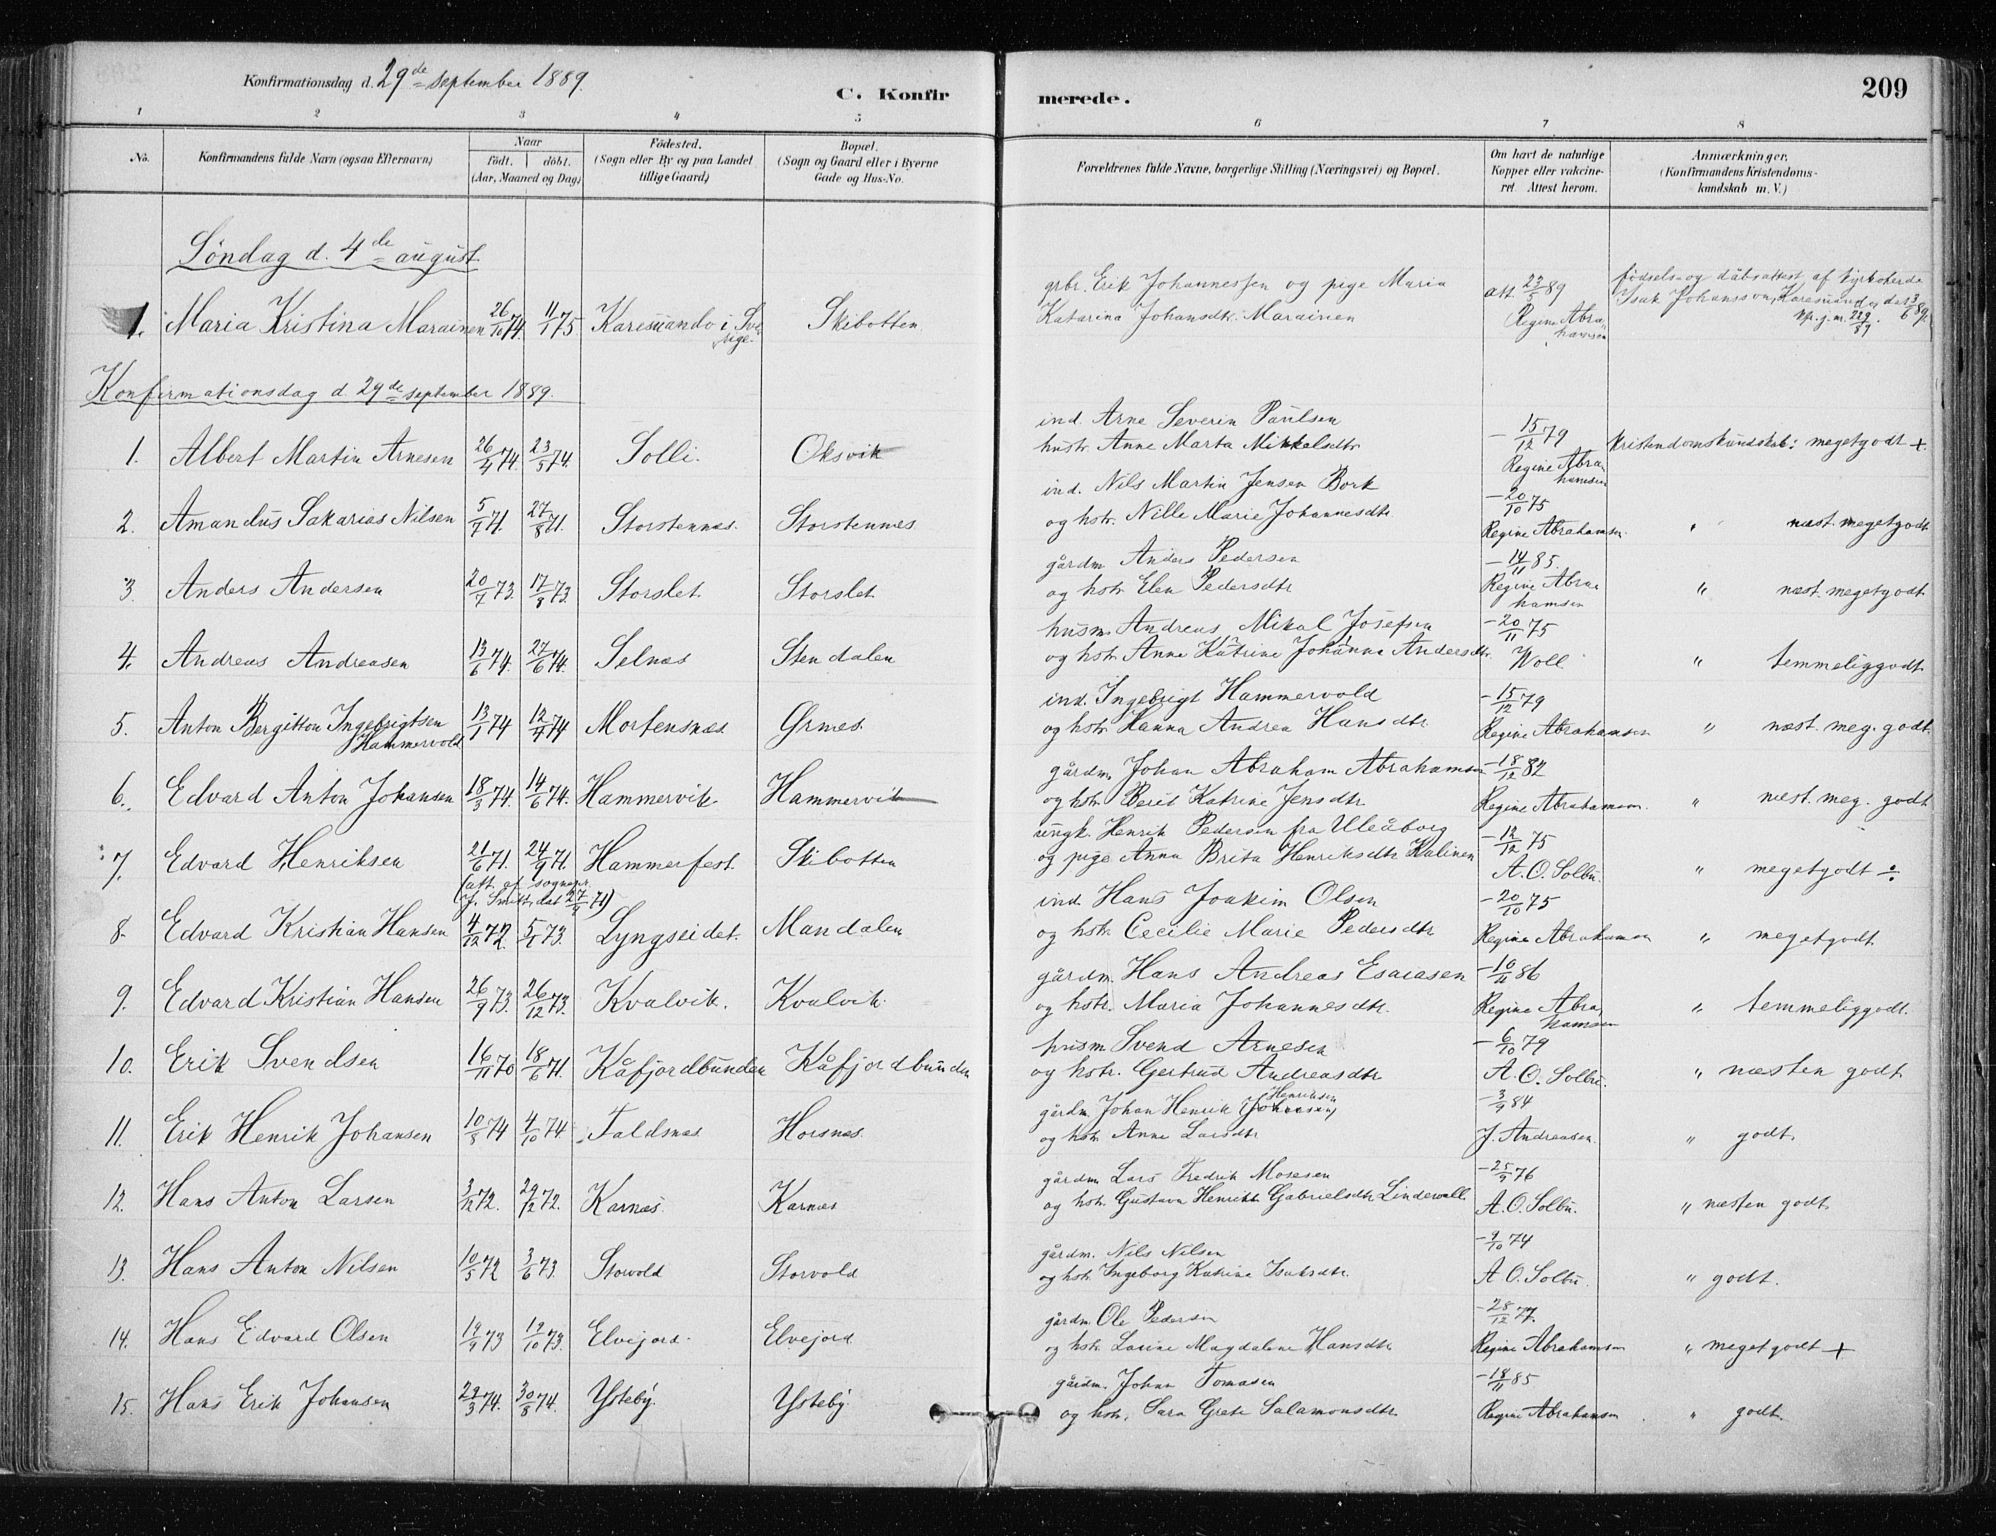 Konfirmationsdag d. 29de september 1889.
C. Konfirmerede.
209
1 2 3 4 5 6 7 8
No.
Konfirmandens fulde Navn (ogsaa Efternavn)
Naar
født. döbt.
(Aar, Maaned og Dag)
Födested.
(Sogn eller By og paa Landet
tillige Gaard)
Bopæl.
(Sogn og Gaard eller i Byerne
Gade og Hus-No.
Forældrenes fulde Navne, borgerlige Stilling (Næringsvei) og Bopæl.
Om havt de naturlige
Kopper eller vakcine-
ret. Attest herom.
Anmærkninger.
(Konfirmandens Kristendoms-
kundskab m. V.)
Søndag d. 4de august.
1. Maria Kristina Marainen 26/10 74. 11/1 75 Karesuando i Sverige. Skibotten
grbr. Erik Johannessen og pige Maria
Katarina Johansdtr. Marainen
att 22/5 89
Regine Abrahamsen
fødsels- og dåbsattest af kyrkoherde
Isak Johansson, Karesuando, dat 3/6 89,
Konfirmationsdag d 29de september 1889.
1. Albert Martin Arnesen 26/4 74. 23/5 74. Solli. Oksvik
ind. Arne Severin Paulsen
hustr. Anne Marta Mikkelsdtr
- 15/12 79
Regine Abrahamsen
kristendomskundskab: megetgodt +.
2. Amandus Sakarias Nilsen 5/7 71 27/8 71. Storstennes. Storstennes
ind. Nils Martin Jensen Bork
og hstr. Nille Marie Johannesdtr
- 20/10 75
Regine Abrahamsen.
" næst. megetgodt
3. Anders Andersen 20/7 73. 17/8 73. Storslet. Storslet
gårdm. Anders Pedersen
og hstr. Elen Pedersdtr
- 14/11 85.
Regine Abrahamsen
" næst. megetgodt
4. Andreas Andreasen 13/6 74. 27/6 74. Selnæs Stendalen
husm. Andreas Mikal Josefsen
og hstr. Anne Katrine Johanna Andersdtr.
- 20/11 75
Woll
" temmeliggodt
5. Anton Bergitton Ingebrigtsen Hammervold 13/1 74 12/4 74 Mortensnæs. Grnes.
ind. Ingebrigt Hammervold
og hstr. Hanna Andrea Hansdtr
- 15/12 79
Regine Abrahamsen
" næst. meg. godt.
6. Edvard Anton Johansen 18/3 74. 14/6 74. Hammervik. Hammervik
gårdm. Johan Abraham Abrahamsen
og hstr. Berit Katrine Jensdtr
- 18/12 82
Regine Abrahamsen.
" næst. meg. godt
7. Edvard Henriksen 21/6 71. 24/9 71. Hammerfest. Skibotten
ungk. Henrik Pedersen fra Uleåborg
og pige Anna Brita Henriksdtr Kalinen
- 12/12 75
A. O. Solbu.
" megetgodt ÷
8. Edvard Kristian Hansen 4/12 72. 5/1 73. Lyngseidet. Mandalen
ind. Hans Joakim Olsen
og hstr. Cecilie Marie Pedersdtr
- 20/10 75
Regine Abrahamsen
" megetgodt
9. Edvard Kristian Hansen 26/9 73. 26/12 73. Kvalvik. Kvalvik.
gårdm. Hans Andreas Esaiasen
og hstr. Maria Johannesdtr.
- 10/11 86
Regine Abrahamsen
" temmeliggodt.
10. Erik Svendsen 16/11 70 18/6 71. Kåfjordbunden Kåfjordbunden
husm Svend Arnesen
og hstr. Gertrud Andreasdtr
- 6/10 79
A. O. Solbu.
" næsten godt
11. Erik Henrik Johansen 10/8 74 4/10 74. Faldsnæs. Horsnæs.
gårdm. Johan Henrik Henriksen (Johansen)
og hstr. Anne Larsdtr
- 3/9 84
J. Andreasen.
" godt.
12. Hans Anton Larsen 3/12 72. 29/12 72. Karnæs. Karnæs
gårdm. Lars Fredrik Mosesen
og hstr. Gustava Henritta Gabrielsdtr. Lindewall.
- 25/9 76
A. O. Solbu.
" næsten godt.
13. Hans Anton Nilsen 10/5 72 3/6 73. Storvold Storvold
gårdm. Nils Nilsen
og hstr. Ingeborg Katrine Isaksdtr.
- 9/10 74
A. O. Solbu.
" godt.
14. Hans Edvard Olsen 19/9 73 19/10 73. Elvejord. Elvejord
gårdm. Ole Pedersen
og hstr. Lorine Magdalene Hansdtr
- 28/12 77.
Regine Abrahamsen
" megetgodt +
15. Hans Erik Johansen 29/3 74. 30/8 74. Ysteby. Ysteby
gårdm. Johan Tomasen
og hstr. Sara Grete Salamonsdtr
- 18/11 85
Regine Abrahamsen
" godt.